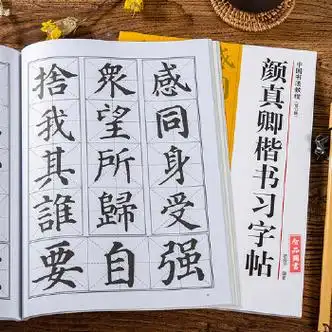 感同身受强
衆望所歸自
捨我其誰要
中国书法教程
颜真卿楷书习字帖